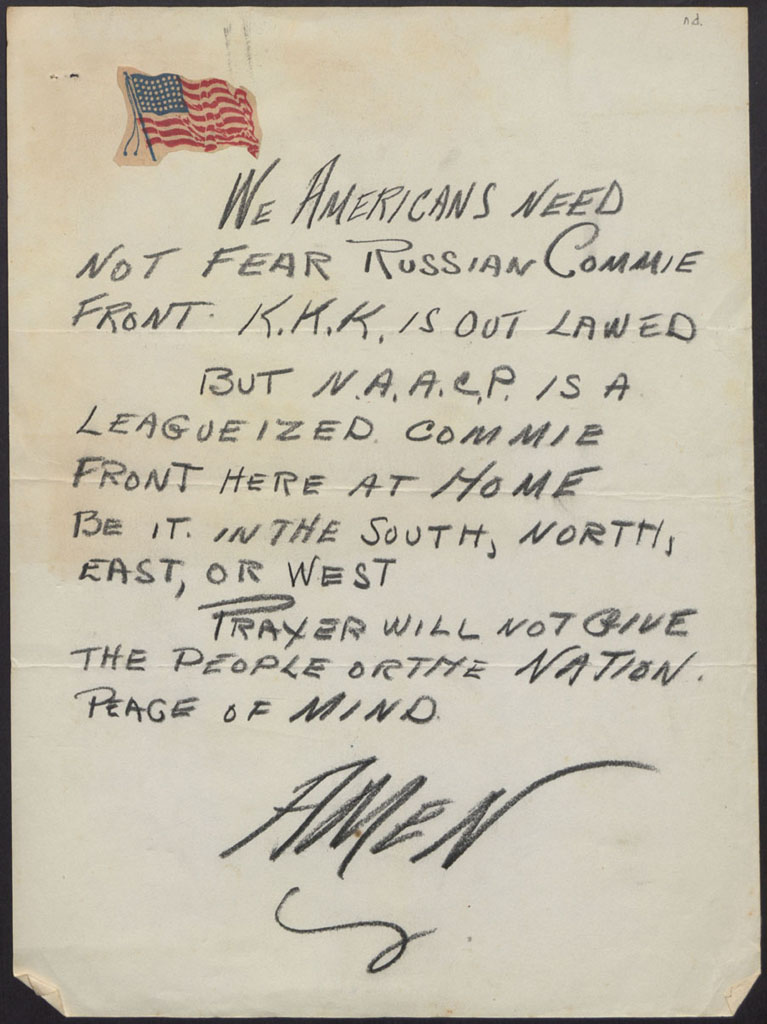 nd.
We Americans need
not fear Russian Commie
front. K.K.K. is out lawed
But N.A.A.C.P. is a
leagueized. commie
front here at home
Be it. in the South, North,
East, or West
Prayer will not give
the people or the nation.
Peace of mind.
Amen